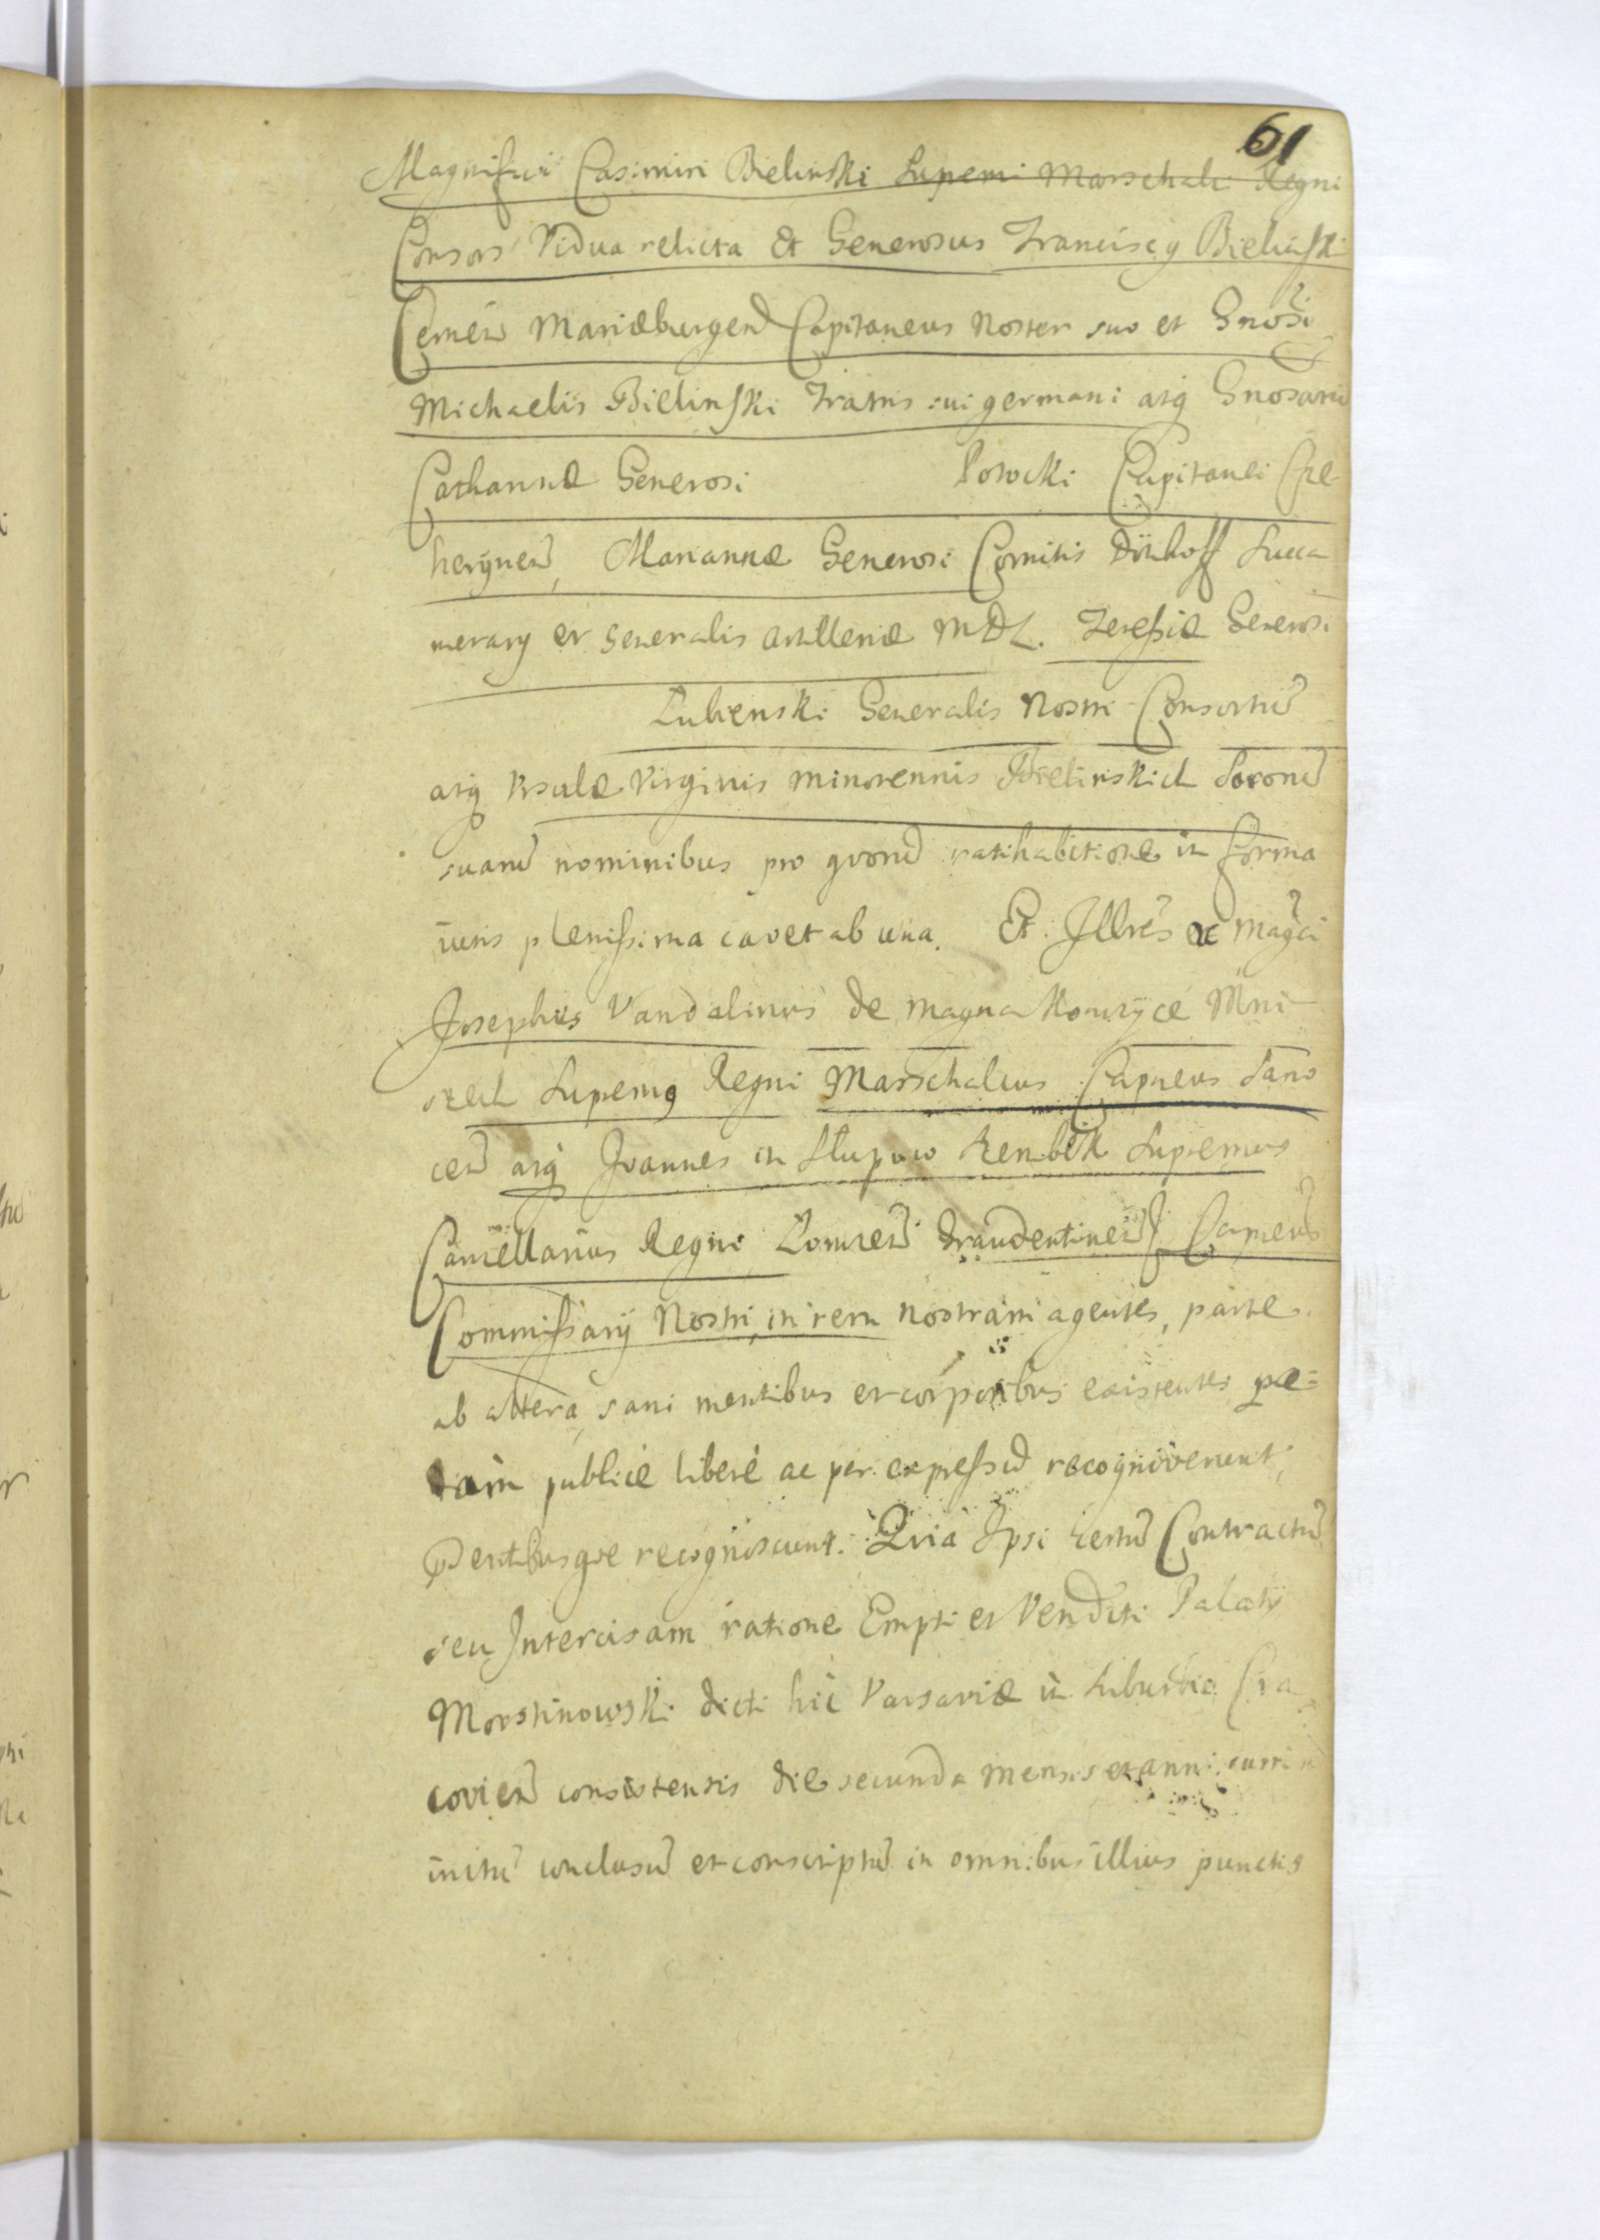 61
Magnifici Casimiri Bielinski Supremi Marschali Regni
Consors Vidua relicta Et Generosus Franciscq Bielinski
Cernen̄ Mariæburgen̄ Capitaneus Noster suo et Gnosi
Michaelis Bielinski Fratris sui germani atq Gnosarū
Catharinæ Generosi Potocki Capitanei Cze
hrynen̄, Mariannæ Generosi Comitis Dönhoff Succa
merarij et Generalis Artilleriæ MDL. Teressiæ Generosi
Lubienski Generalis Nostri Consortiū
atq Vrsulæ Virginis minorennis Bielinskich Sororū
suarū nominibus pro quorū ratihabitione in forma
iuris plenissima cavet ab una. Et Illres ac Magci
Josephus Vandalinus de Magna Konczyce Mni
szech Supremq Regni Marschalcus Capneus Sano
cen̄ atq Joannes in Słupow Szembek Supremus
Cancellarius Regni Łomzen̄ Graudentinen̄ Capneus
Commissarij Nostri, in rem nostram agentes, parte
ab altera, sani mentibus et corporibus existentes pa=
lam publice libere ac per expressū recognoverunt,
Pdentibusque recognoscunt. Quia Ipsi certū Contractū
seu Intercisam ratione Empti et Venditi Palatij
Morstinowski dicti hic Varsaviæ in Suburbio Cra
covien̄ consistentis die secunda mensis et anni curren
initū conclusū et conscriptū in omnibus illius punctis